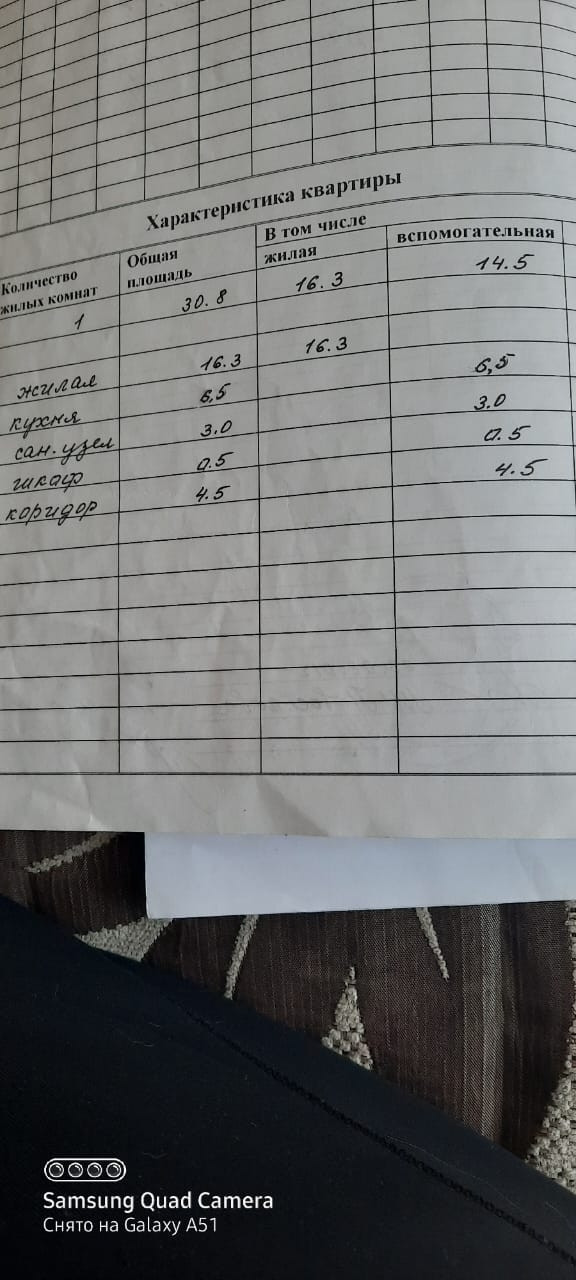 Характеристика квартиры
Количество жилых комнат
Общая площадь
В том числе
жилая
вспомогательная
1 30.8 16.3 14.5
жилая 16.3 16.3
кухня 6,5 6,5
сан. узел 3.0 3.0
шкаф 0.5 0.5
коридор 4.5 4.5
Samsung Quad Camera
Снято на Galaxy A51